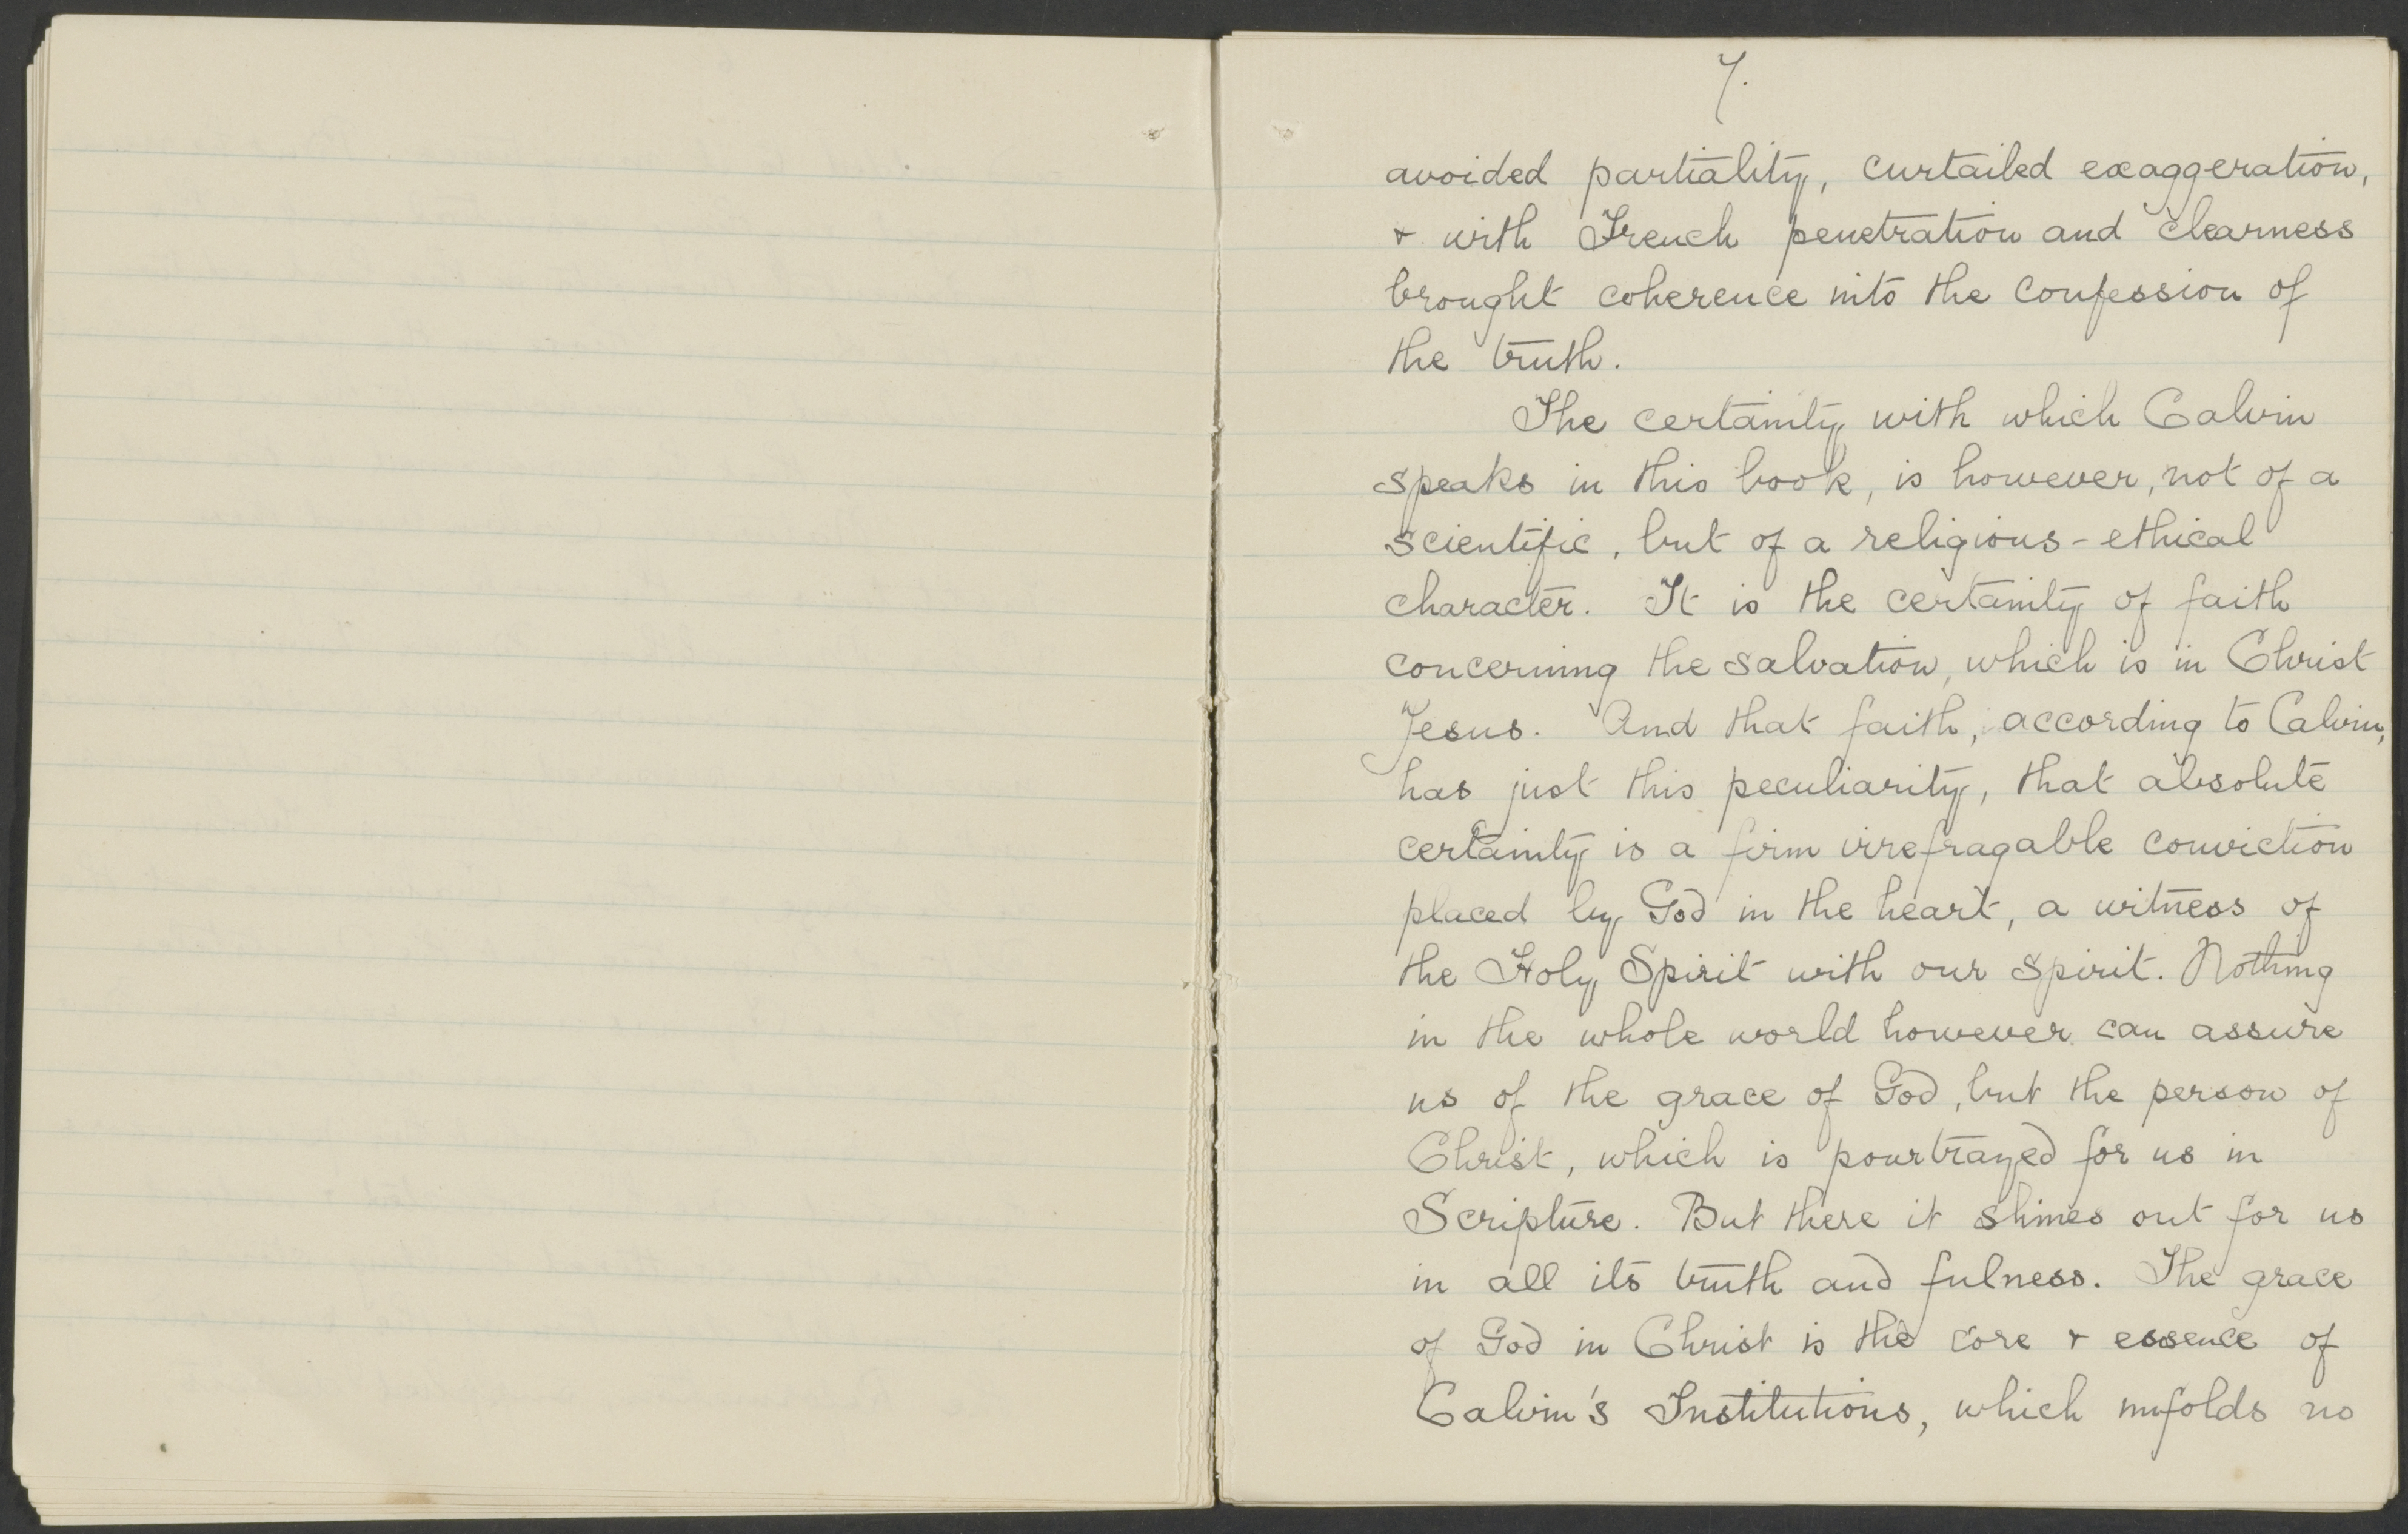 7.
avoided partiality, curtailed exaggeration,
& with French penetration and clearness
brought coherence into the confession of
the truth.
The certainty with which Calvin
speaks in this book, is however, not of a
scientific, but of a religious-ethical
character. It is the certainty of faith
concerning the salvation, which is in Christ
Jesus. And that faith, according to Calvin,
has just this peculiarity, that absolute
certainty is a firm irrefragable conviction
placed by God in the heart, a witness of
the Holy Spirit with our spirit. Nothing
in the whole world however can assure
us of the grace of God, but the person of
Christ, which is pourtrayed for us in
Scripture. But there it shines out for us
in all its truth and fulness. The grace
of God in Christ is the core & essence of
Calvin's Institutions, which unfolds no